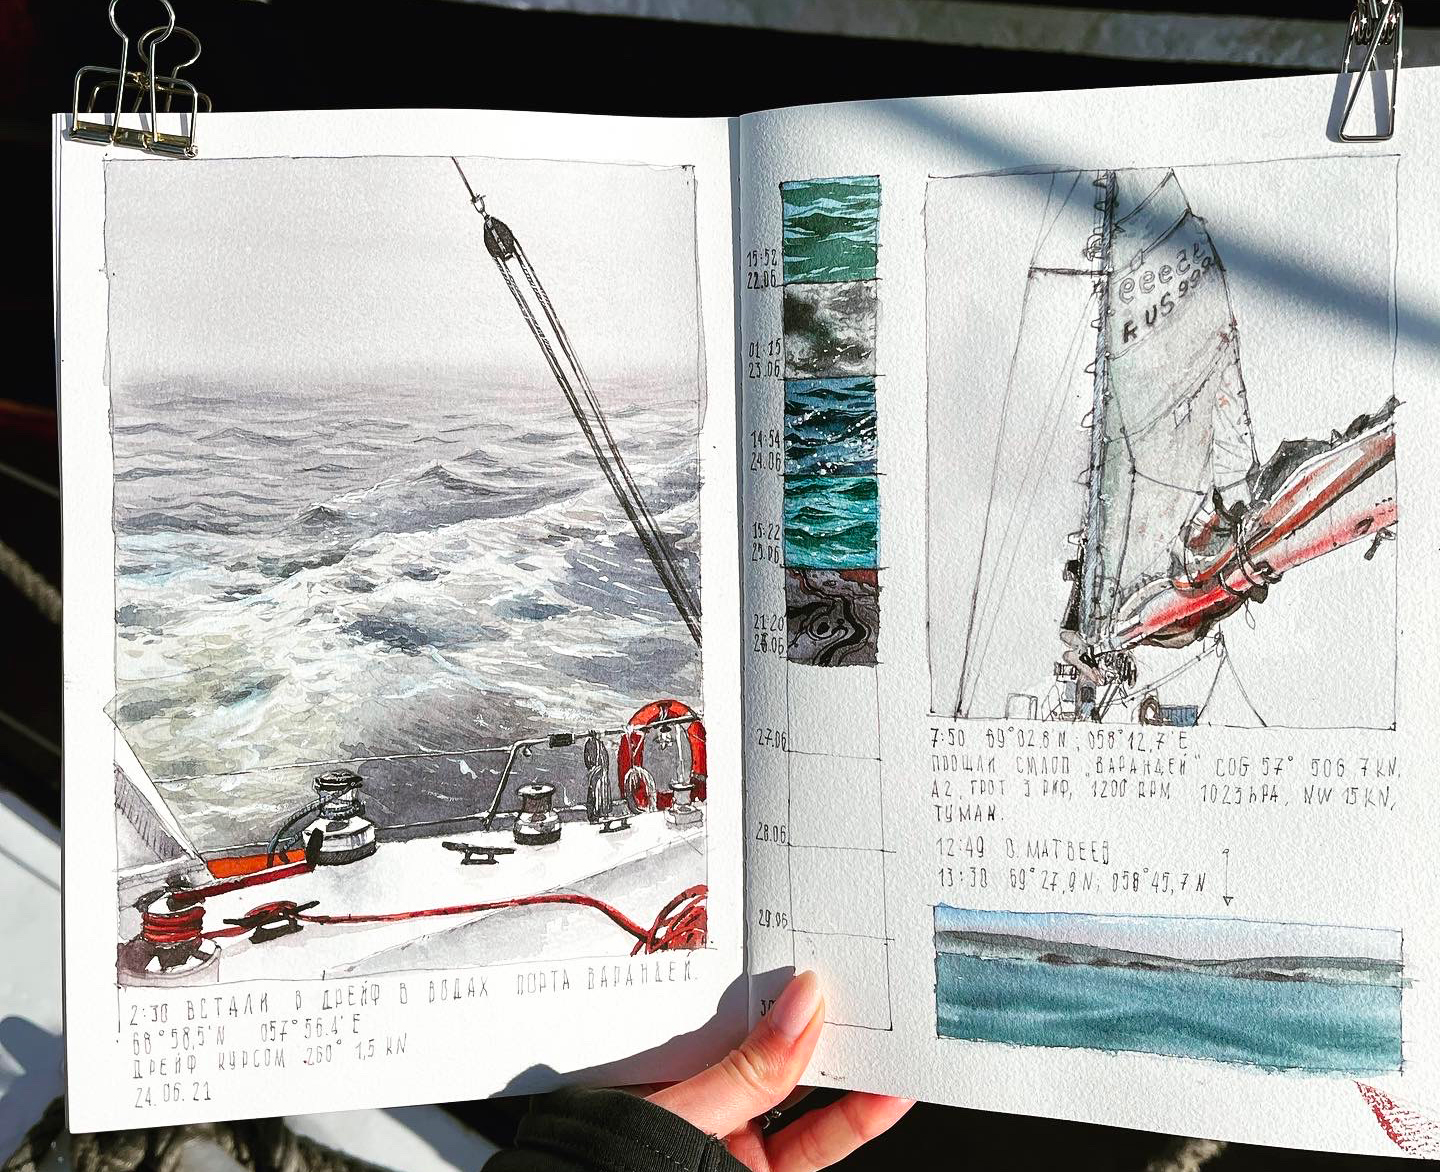 2:30 ВСТАЛИ В ДРЕЙФ В ВОДАХ ПОРТА ВАРАНДЕЙ.
68°58,5'N 057°56.4'E
ДРЕЙФ КУРСОМ 260° 1,5 KN
24.06.21
15:52
22.06
01:15
23.06
14:54
24.06
15:22
25.06
21:20
26.06
27.06
28.06
29.06
30
RUS 999
7:50 69°02.8 N; 058°12,7'E
ПРОШЛИ СМЛОП „ВАРАНДЕЙ" COG 57° SOG 7 KN,
A2, ГРОТ 3 РИФ, 1200 RPM 1023 hPA, NW 15 KN,
ТУМАН.
12:49 О. МАТВЕЕВ
13:30 69°27,9 N; 058°45,7 N